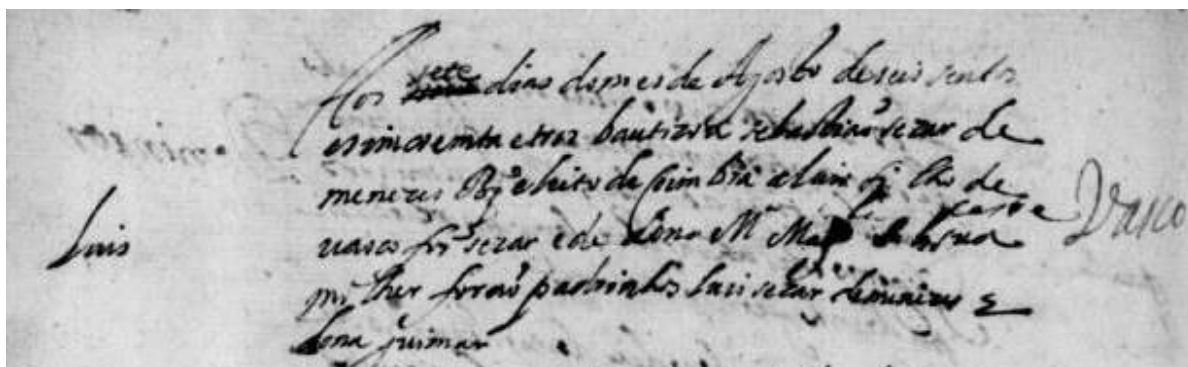 Aos sete dias do mes de Agosto de seis sentos
e sincoemta e tres bautizou sebastiaõ sezar de
menezes Bpº eleito de Coimbra a luis fº lho de
Luis
Vasco
vasco frz sezar e de dona Mª
molher foraõ padrinhos luis sezar de menezes e
dona guimar